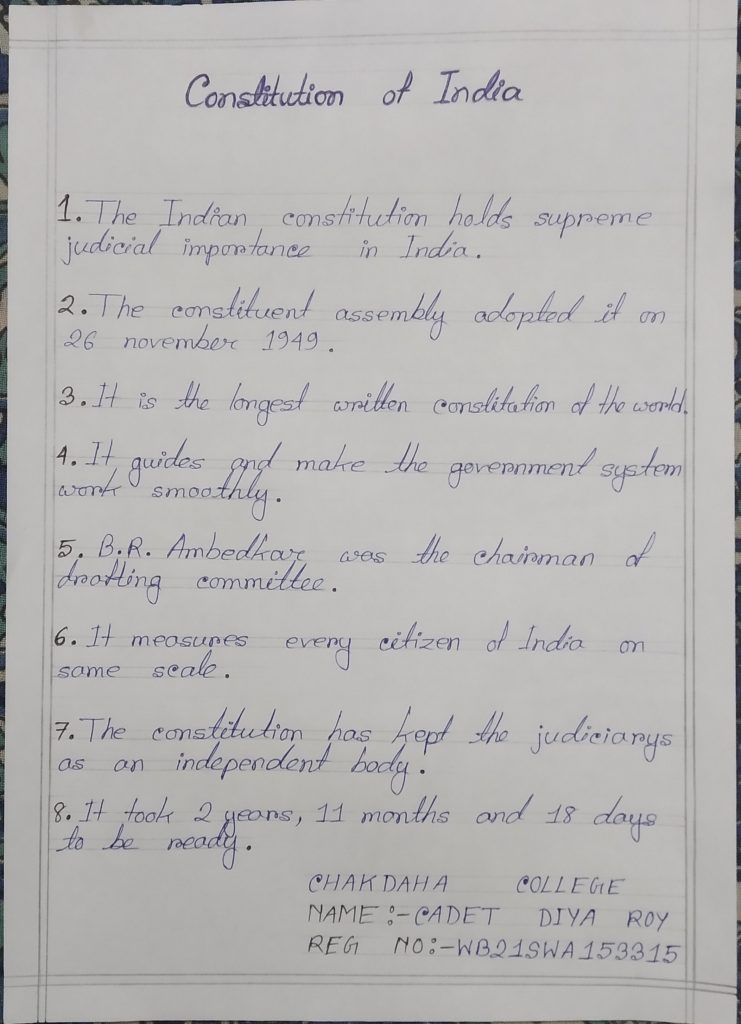 Constitution of India
1. The Indian constitution holds supreme
judicial importance in India.
2. The constituent assembly adopted it on
26 november 1949.
3. It is the longest written constitution of the world.
4. It guides and make the government system
work smoothly.
5. B.R. Ambedkar was the chairman of
drafting committee.
6. It measures every citizen of India on
same scale.
7. The constitution has kept the judiciarys
as an independent body.
8. It took 2 years, 11 months and 18 days
to be ready.
CHAKDAHA COLLEGE
NAME :- CADET DIYA ROY
REG NO:-WB21SWA153315